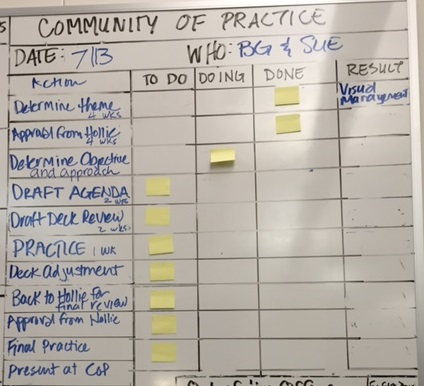 COMMUNITY OF PRACTICE
DATE: 7/13 WHO: BG & SUE
Action TO DO DOING DONE RESULT
Determine theme
4 wks
Visual
Management
Approval from Hollie
4 wks
Determine Objective
and approach
DRAFT AGENDA
2 wks
Draft Deck Review
2 wks.
PRACTICE 1 WK
Deck Adjustment
Back to Hollie for
final review
Approval from Hollie
Final Practice
Present at CoP